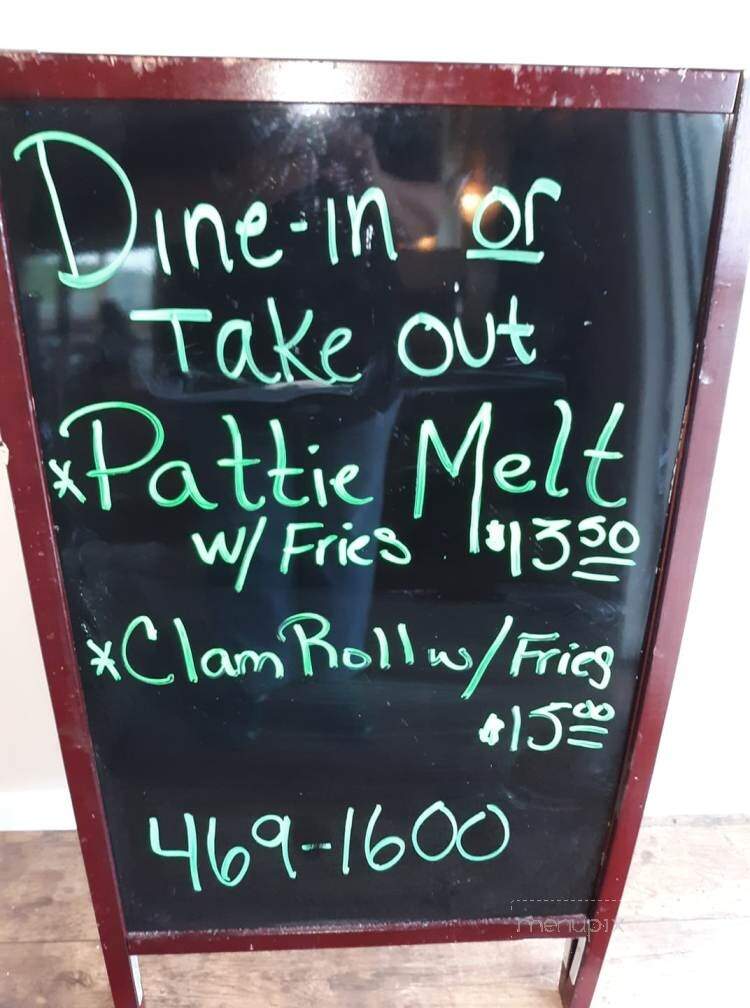 Dine-in or
Take out
*Pattie Melt
w/ Fries $13.50
*Clam Roll w/ Fries
$15.00
469-1600
menupix